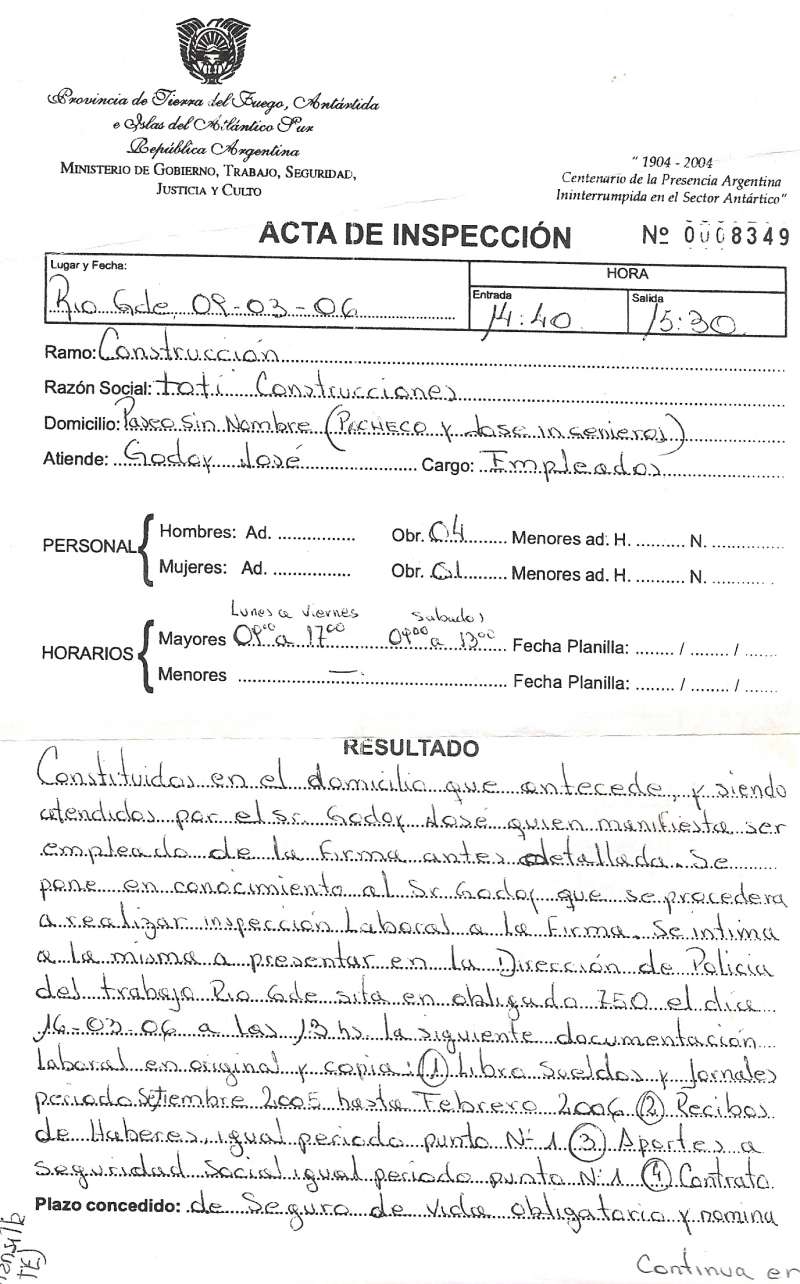 Provincia de Tierra del Fuego, Antártida
e Islas del Atlántico Sur
República Argentina
MINISTERIO DE GOBIERNO, TRABAJO, SEGURIDAD,
JUSTICIA Y CULTO
" 1904 - 2004
Centenario de la Presencia Argentina
Ininterrumpida en el Sector Antártico"
ACTA DE INSPECCIÓN Nº 0008349
Lugar y Fecha: HORA
Rio Gde, 09-03-06 Entrada 14:40 Salida 15:30
Ramo: Construcción
Razón Social: toti Construcciones
Domicilio: Paseo Sin Nombre (PACHECO y Jose ingenieros)
Atiende: Godoy José Cargo: Empleados
PERSONAL
Hombres: Ad. Obr. 04 Menores ad. H. N.
Mujeres: Ad. Obr. 01 Menores ad. H. N.
HORARIOS
Lunes a Viernes Sabados
Mayores 09⁰⁰ a 17⁰⁰ 09⁰⁰ a 13⁰⁰ Fecha Planilla: / /
Menores — Fecha Planilla: / /
RESULTADO
Constituidos en el domicilio que antecede, y siendo
atendidos por el Sr. Godoy José quien manifiesta ser
empleado de la firma antes detallada. Se
pone en conocimiento al Sr Godoy que se procedera
a realizar inspección Laboral a la Firma. Se intima
a la misma a presentar en la Dirección de Policia
del trabajo Rio Gde sita en obligado 750 el dia
16-03-06 a las 13 hs. la siguiente documentación
laboral en original y copia: (1) Libro Sueldos y Jornales
periodo Setiembre 2005 hasta Febrero 2006 (2) Recibos
de Haberes, igual periodo punto Nº 1 (3) Aportes a
Seguridad Social igual periodo punto Nº 1 (4) Contrato
Plazo concedido: de Seguro de vida obligatorio y nomina
Continua en